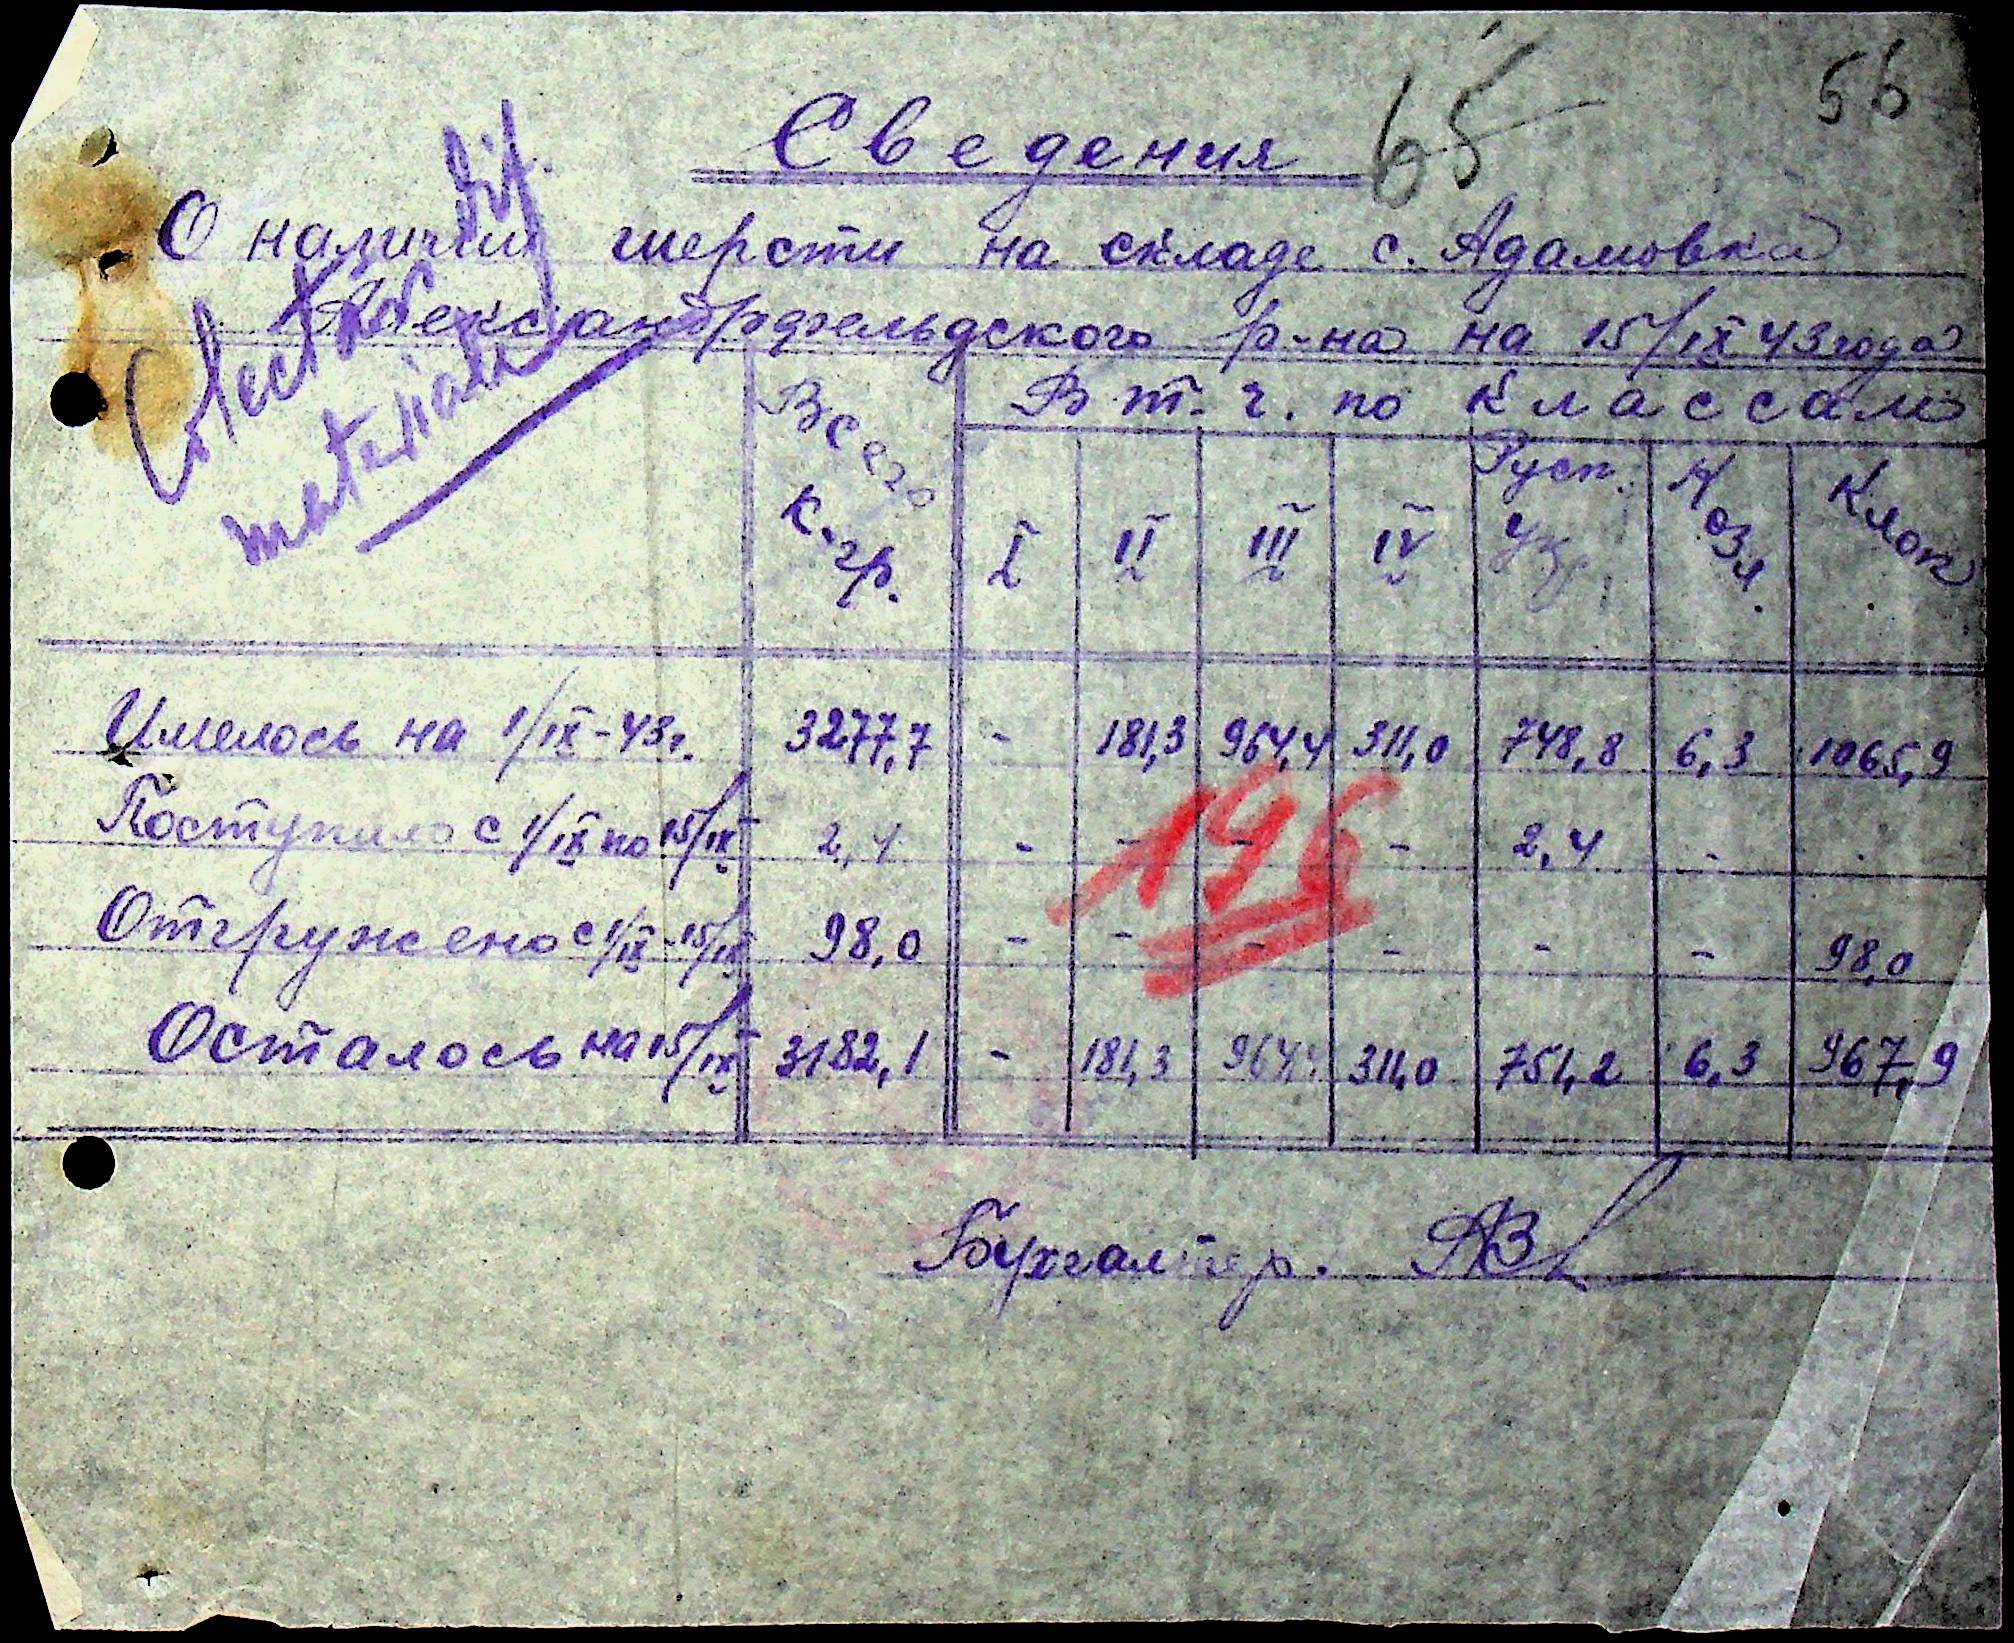 56
65
Сведения
О наличии шерсти на складе с. Адамовка
Александрфельдского р-на на 15/IX 43 года
Colectări dif.
materiale
Всего к.гр. В т.ч. по классам
I II III IV Руск. укр. Козл. Клок
Имелось на 1/IX-43г. 3277,7 - 181,3 964,4 311,0 748,8 6,3 1065,9
Поступило с 1/IX по 15/IX 2,4 - - - - 2,4 - .
Отгружено с 1/IX-15/IX 98,0 - - - - - - 98,0
Осталось на 15/IX 3182,1 - 181,3 964,4 311,0 751,2 6,3 967,9
196
Бухгалтер.